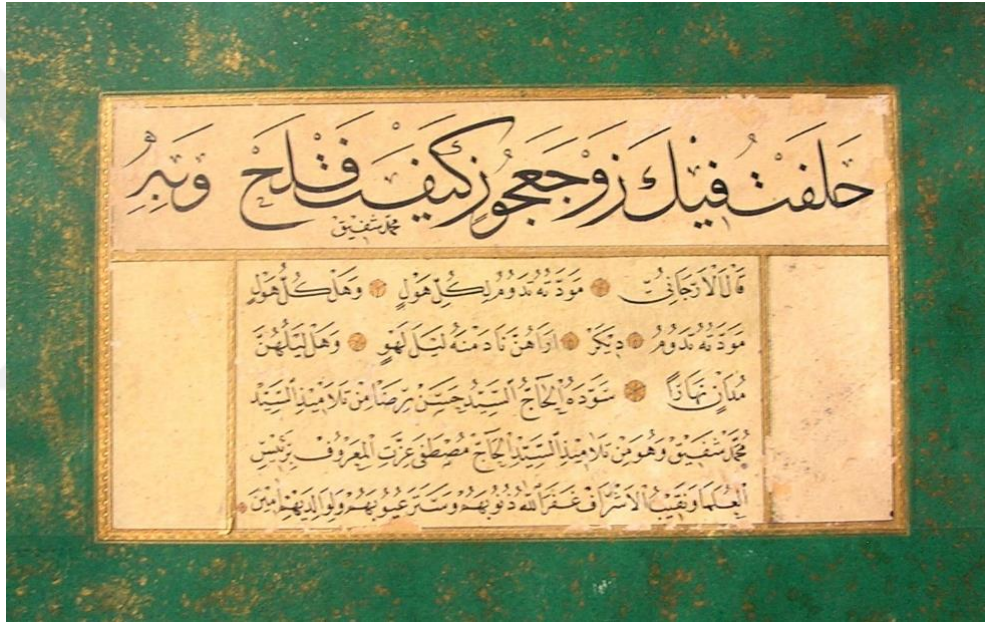 حَلَفَتْ فِيكَ زَوْجَ عَجُوزٍ كَيْفَ تَفْلَحُ
محمد شفيق
قَالَ الْاَرَّجَانِيُّ مَوَدَّتُهُ تَدُومُ لِكُلِّ هَوْلٍ وَهَلْ كُلٌّ هَوْلٍ
مَوَدَّتُهُ تَدُومُ دِيكَرْ اَرَاهُنَّ نَادَمْنَهُ لَيْلَ لَهْوٍ وَهَلْ لَيْلُهُنَّ
مُدَانٍ نَهَارًا سَوَّدَهُ الْحَاجُّ السَّيِّدُ حَسَنْ رِضَا مِنْ تَلَامِيذِ السَّيِّدِ
مُحَمَّدْ شَفِيقْ وَهُوَ مِنْ تَلَامِيذِ السَّيِّدِ الْحَاجِّ مُصْطَفَى عِزَّتِ الْمَعْرُوفِ بِرَئِيسِ
الْعُلَمَا وَنَقِيبُ الْاَشْرَافِ غَفَرَ اللّٰهُ ذُنُوبَهُمْ وَسَتَرَ عُيُوبَهُمْ وَلِوَالِدَيْهِمْ اٰمِينَ